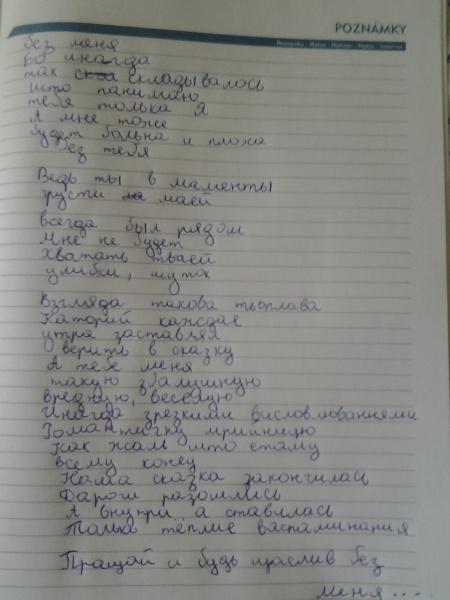 POZNÁMKY
Poznámky · Notes · Notizen · Notes
без меня
Бо инагда
так ска складывалось
што панимаю
тебя толька я
А мне тоже
будет больна и плоха
без тебя
Ведь ты в маменты
грусти ма маей
всегда был рядом
мне не будет
хватать тваей
улибки, шуток
Взгляда такова тьоплава
Каторий каждае
утра заставлял
верить в сказку
А тебе меня
такую збалмшную
вредную, весёлую
Инагда з резкими висловлюваннями
Романтичну мрийницю
Как жаль што етаму
всему конец
Наша сказка закончилась
Дароги разошлись
А внутри .. а ставилась
Толька тёплие васпаминания
Пращай и будь щаслив без
меня ....